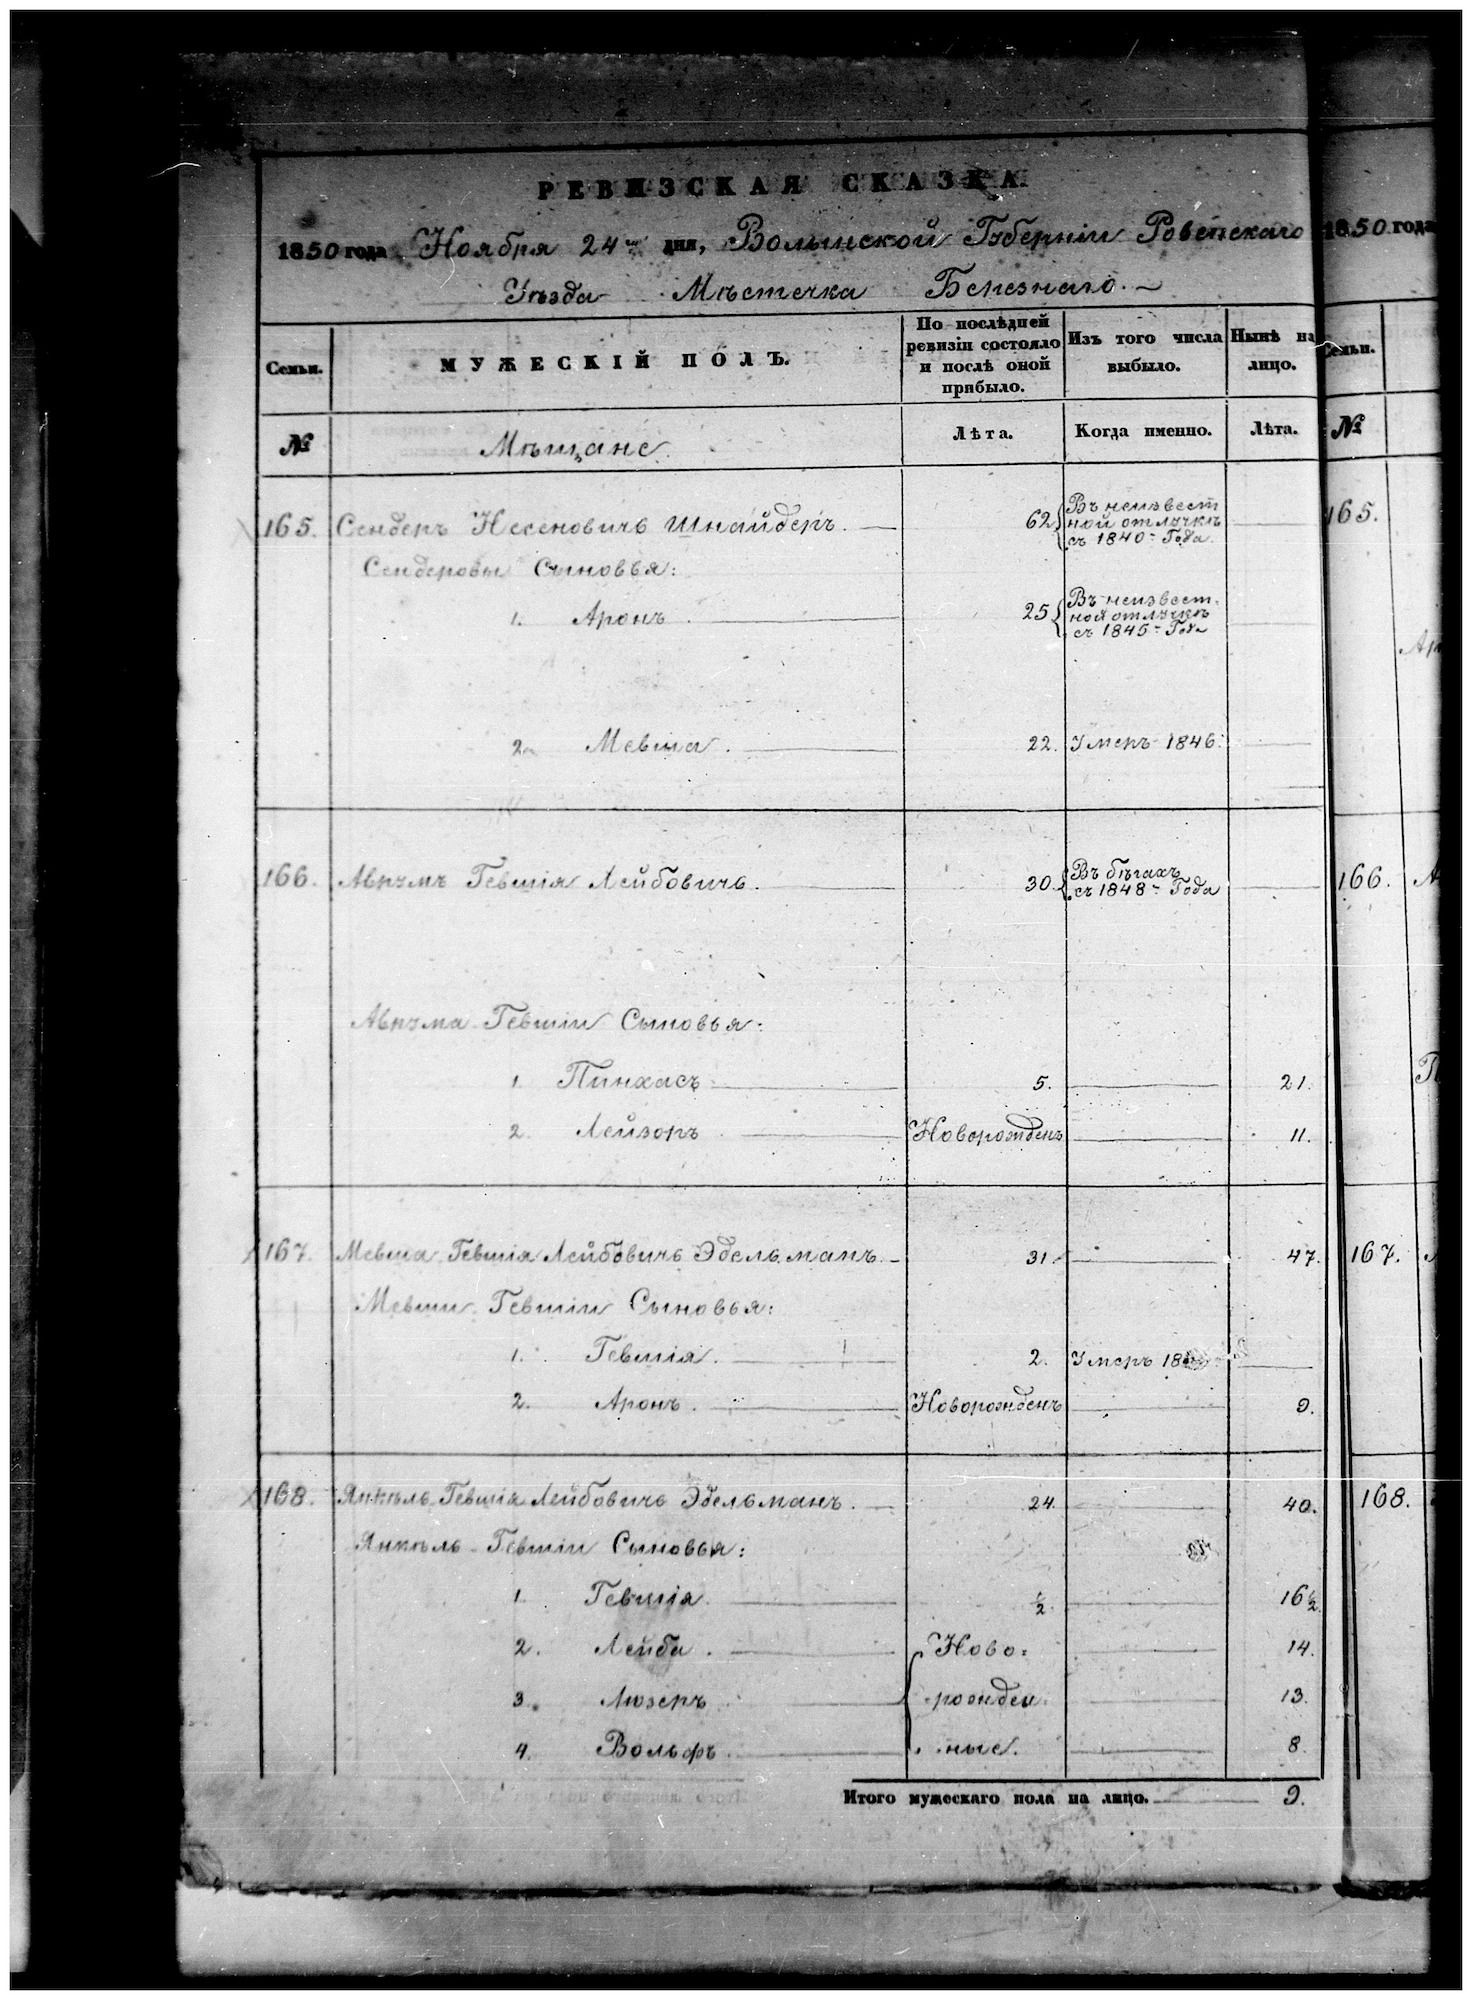 РЕВИЗСКАЯ СКАЗКА.
1850 года Ноября 24го дня, Волынской Губерніи Ровенскаго
Уѣзда Мѣстечка Березнаго.
Семьи.
МУЖЕСКІЙ ПОЛЪ.
По послѣдней ревизіи состояло и послѣ оной прибыло.
Изъ того числа выбыло.
Нынѣ на лицо.
№
Мѣщане
Лѣта.
Когда именно.
Лѣта.
165. Сендеръ Несеновичъ Шнайдеръ. 62 Въ неизвест
ной отлучкѣ
съ 1840 Года
Сендеровы Сыновья:
1. Аронъ. 25 Въ неизвест.
ной отлучкѣ
съ 1845 Года
2. Мевша. 22. Умеръ 1846.
166. Аврумъ Гевшія Лейбовичъ. 30. Въ бѣгахъ
съ 1848 Года
Аврума Гевшіи Сыновья:
1. Пинхасъ 5. 21.
2. Лейзоръ Новорожденъ 11.
167. Мевша Гевшія Лейбовичъ Эдельманъ. 31. 47.
Мевши Гевшіи Сыновья:
1. Гевшія. 2. Умеръ
2. Аронъ. Новорожденъ 9.
168. Янкель Гевшія Лейбовичъ Эдельманъ. 24. 40.
Янкель Гевшіи Сыновья:
1. Гевшія. 1/2. 16 1/2.
2. Лейба. Ново= 14.
3. Люзеръ рожден 13.
4. Вольфъ. ные. 8.
Итого мужескаго пола на лицо. 9.
1850 года
Семьи.
№
165.
166.
167.
168.